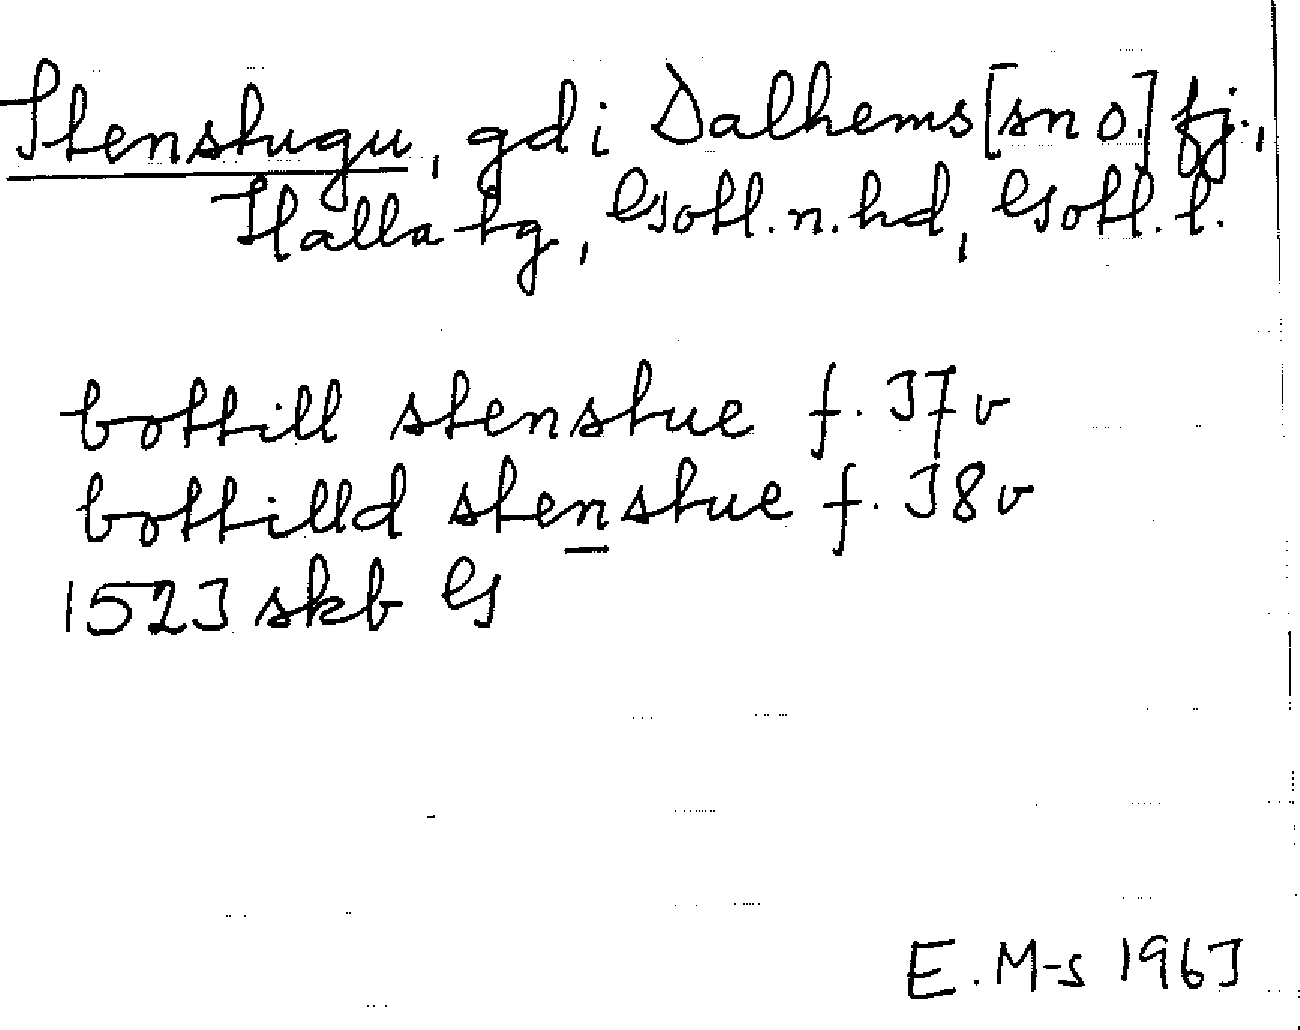 Stenstugu, gd i Dalhems [sn o.] fj.,
Halla tg, Gotl. n. hd, Gotl. l.
bottill stenstue f. 37 v
bottilld stenstue f. 38 v
1523 skb G
E. M-s 1963